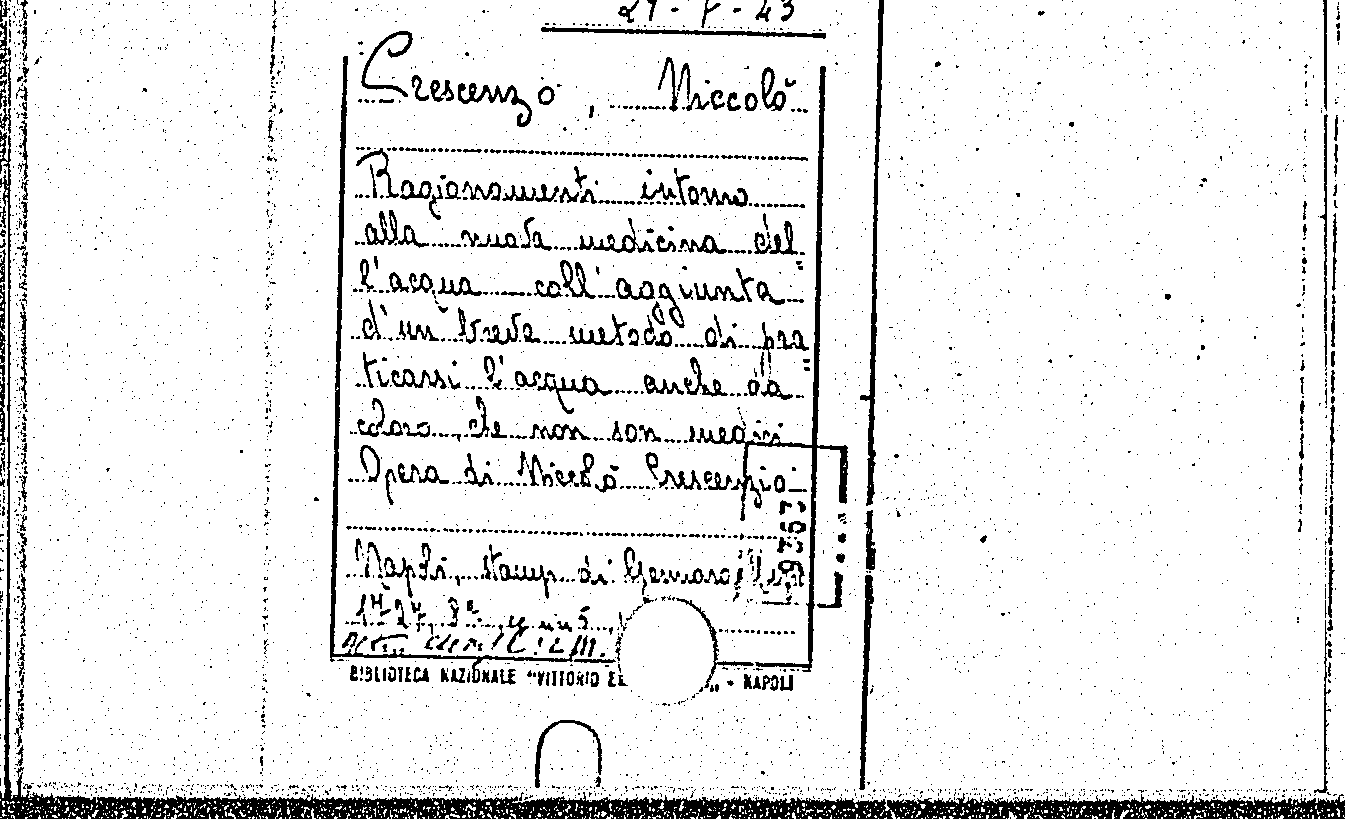 Crescenzo, Niccolò
Ragionamenti intorno
alla nuova medicina del
l'acqua coll'aggiunta
d'un breve metodo di pra
ticarsi l'acqua anche da
coloro che non son medici
Opera di Niccolò Crescenzio
Napoli, stamp. di Gennaro
1727, 8°
BIBLIOTECA NAZIONALE "VITTORIO - NAPOLI